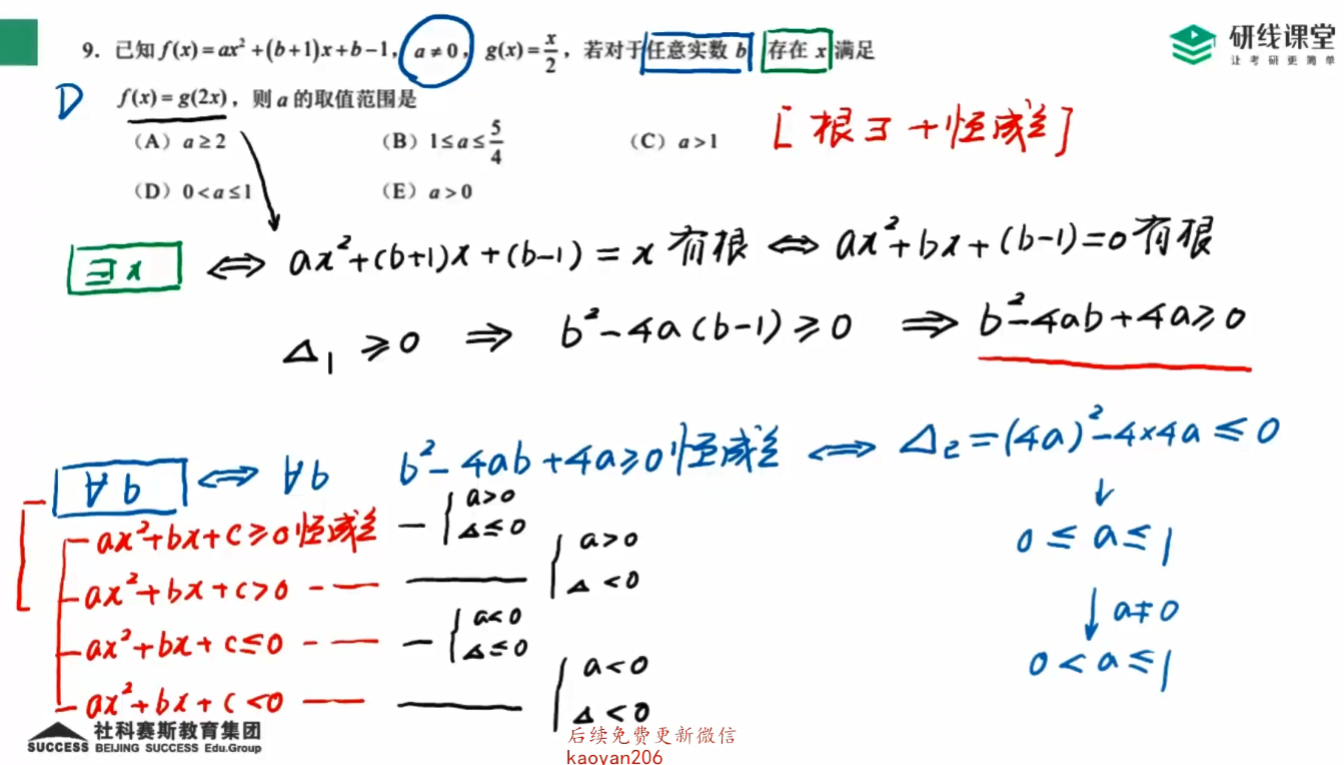 9. 已知 f(x)=ax²+(b+1)x+b-1, a≠0, g(x)=x/2, 若对于任意实数 b 存在 x 满足
D f(x)=g(2x), 则 a 的取值范围是
(A) a≥2 (B) 1≤a≤5/4 (C) a>1
(D) 0<a≤1 (E) a>0
[根∃+恒成立]
研线课堂
让考研更简单
∃x ⇔ ax²+(b+1)x+(b-1)=x 有根 ⇔ ax²+bx+(b-1)=0 有根
Δ₁≥0 ⇒ b²-4a(b-1)≥0 ⇒ b²-4ab+4a≥0
∀b ⇔ ∀b b²-4ab+4a≥0 恒成立 ⇔ Δ₂=(4a)²-4×4a≤0
↓
0≤a≤1
↓ a≠0
0<a≤1
ax²+bx+c≥0 恒成立 — { a>0 Δ≤0
ax²+bx+c>0 - — —— { a>0 Δ<0
ax²+bx+c≤0 - — — { a<0 Δ≤0
ax²+bx+c<0 — —— { a<0 Δ<0
社科赛斯教育集团
SUCCESS BEIJING SUCCESS Edu.Group
后续免费更新微信
kaoyan206